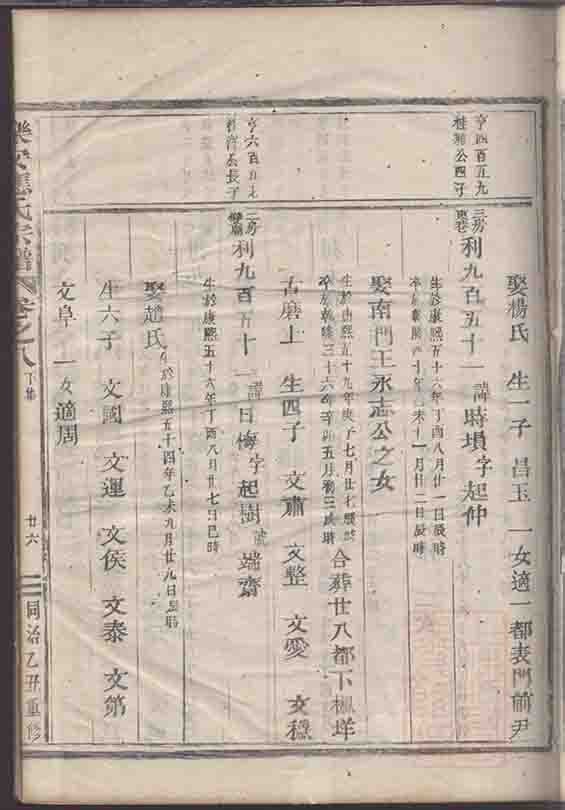 亨四百五九
桂 公四子
亨六百五九
長子
娶楊氏 生一子 昌玉 一女適一都表門前尹
三房
利九百五十一 諱時塤 字起仲
生於康熙五十六年丁酉八月廿一日辰時
卒於乾隆 十年 未十一月廿二日辰時
娶南門王永志公之女
生於康熙五十九年庚子七月廿七 時
卒於乾隆三十六年辛卯五月初三 時 合葬廿八都下楓垟
石磨上 生四子 文肅 文整 文愛 文穩
二房
利九百五十一 諱日悔 字起樹 號端齋
生於康熙五十六年丁酉八月廿七日巳時
娶趙氏 生於康熙五十四年乙未九月廿九日 時
生六子 文國 文運 文侯 文泰 文第
文阜 一女適周
樂安 氏宗譜 卷之八 下集 廿六 同治乙丑重修